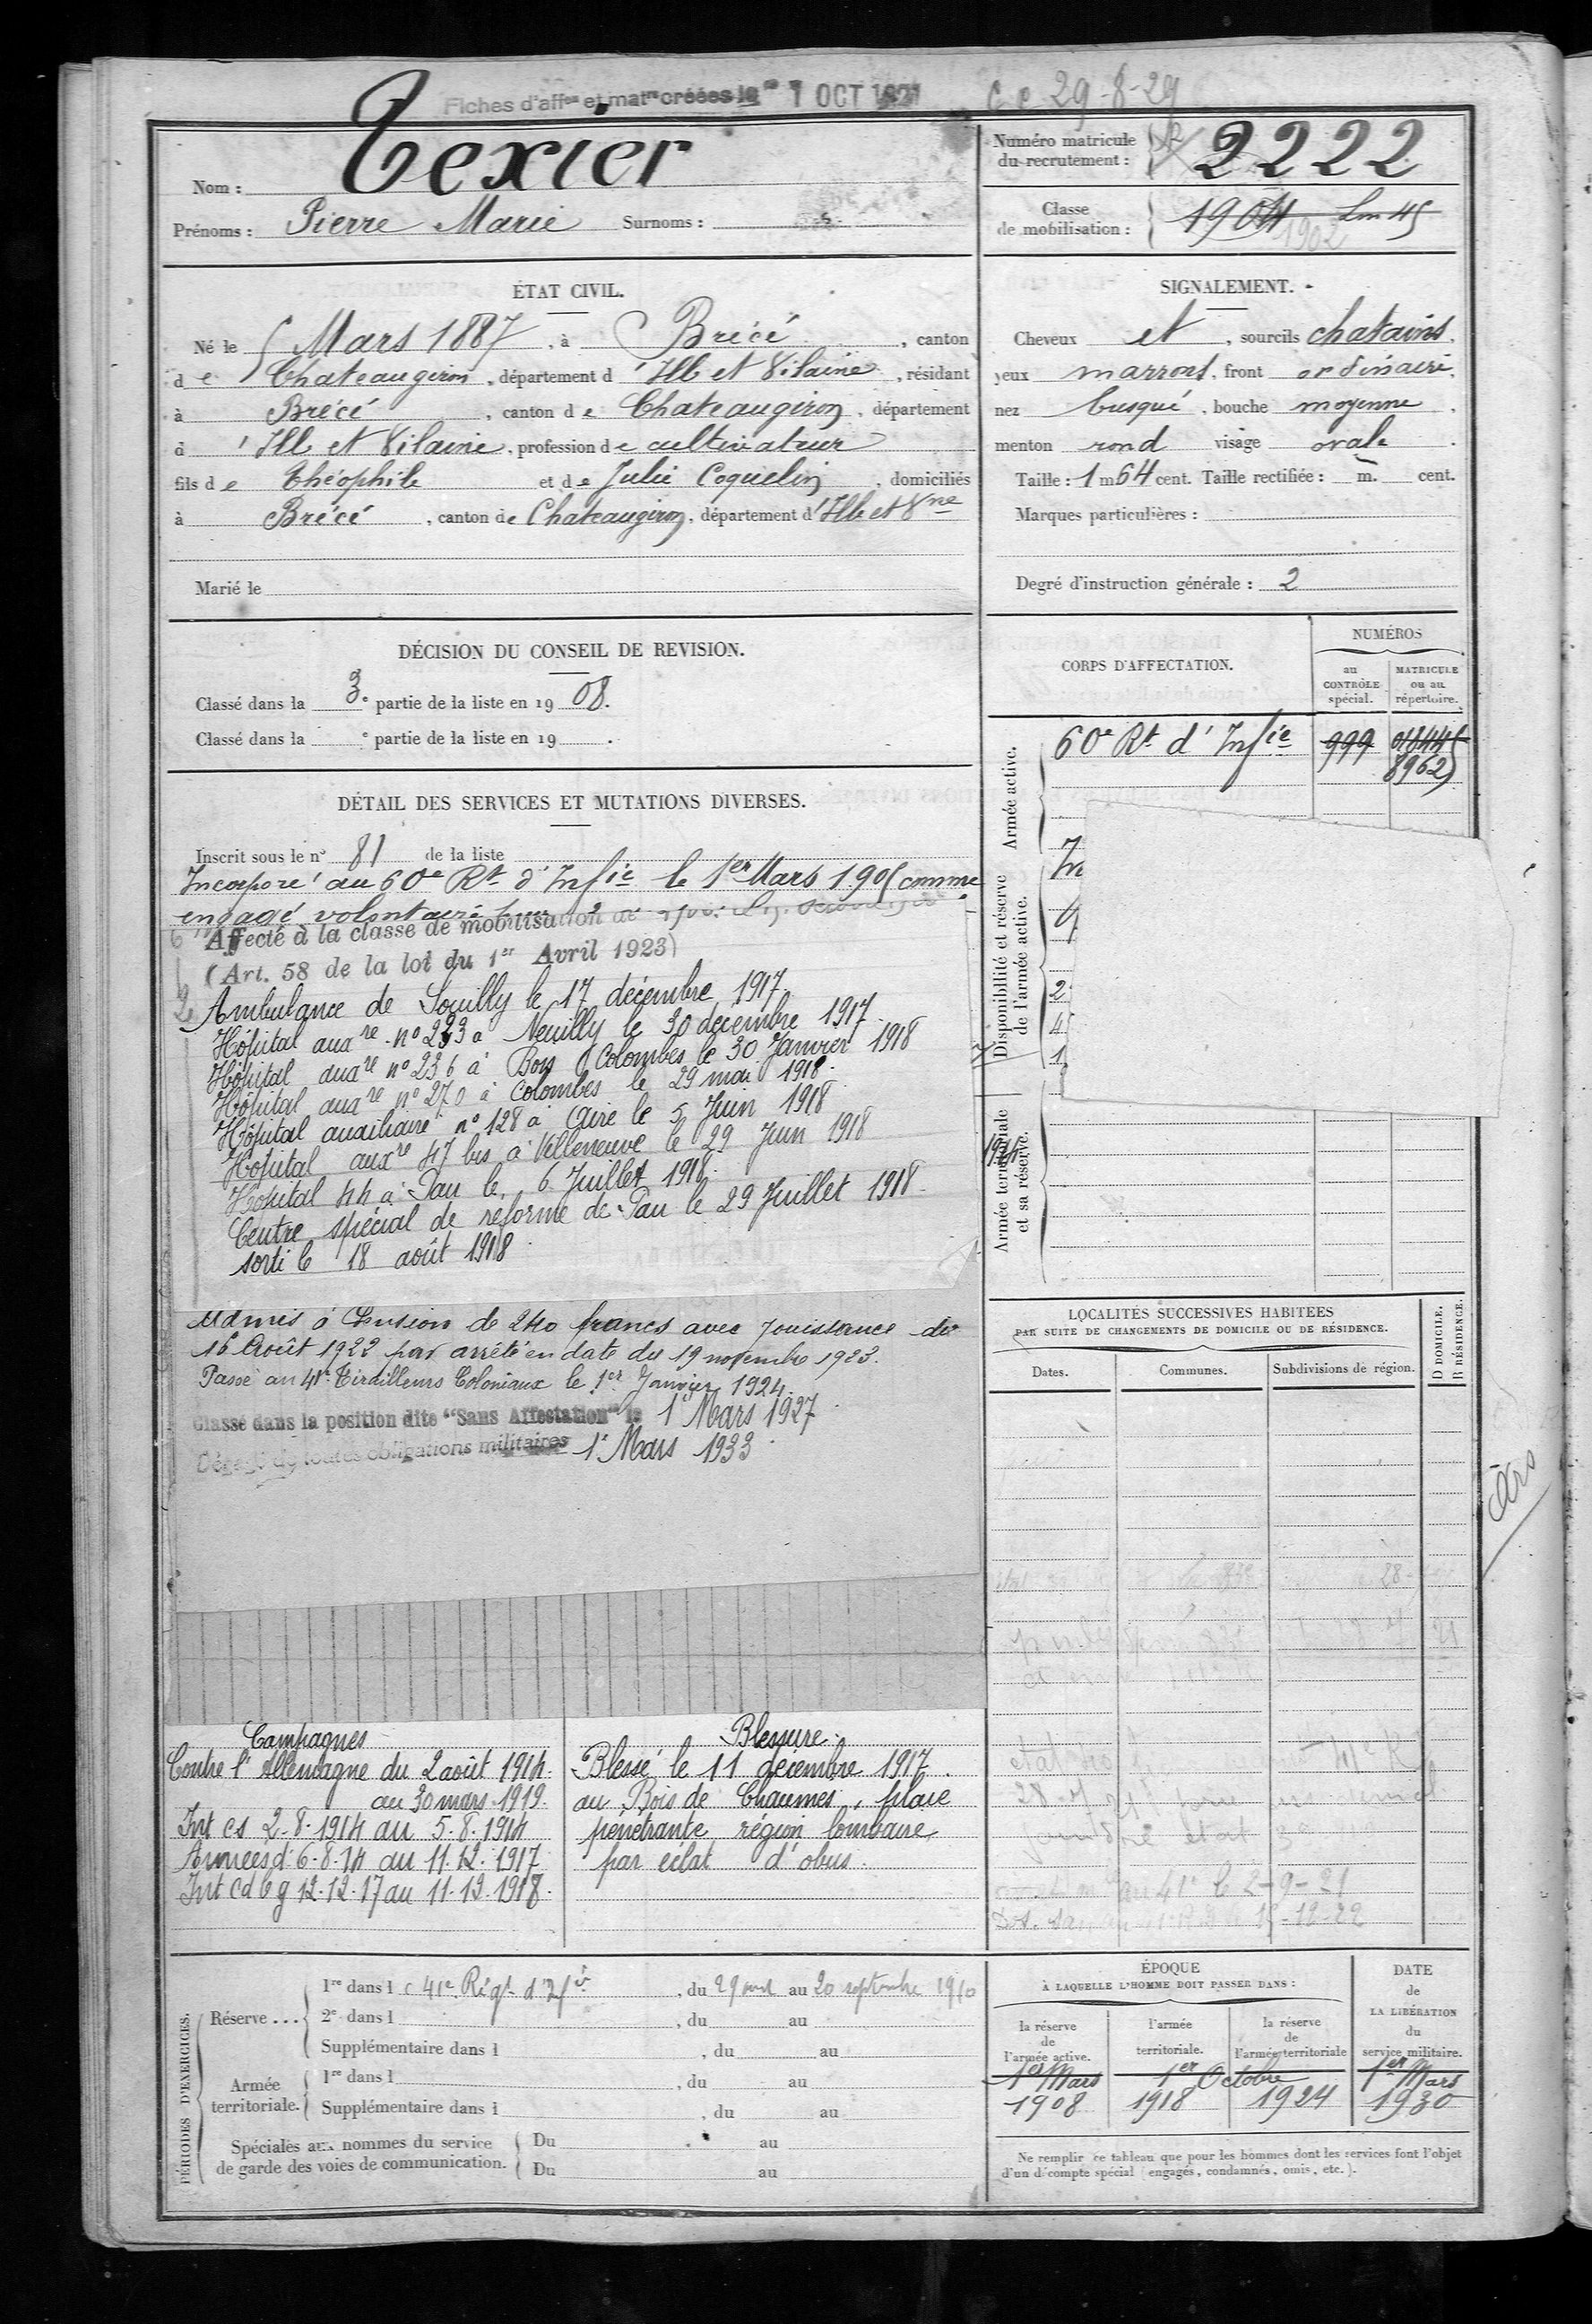 Fiches d'affon et matre créées le 7 OCT 1921
C.C 29-8-29
Nom : Texier
Prénoms : Pierre Marie Surnoms :
Numéro matricule du recrutement : 2222
Classe de mobilisation : 1904 Lm 45
1902
ÉTAT CIVIL.
Né le 5 Mars 1887, à Brécé, canton
de Chateaugiron, département d'Ille et Vilaine, résidant
à Brécé, canton de Chateaugiron, département
d'Ille et Vilaine, profession de cultivateur
fils de Théophile et de Julie Coquelin, domiciliés
à Brécé, canton de Chateaugiron, département d'Ille et Vne
Marié le
SIGNALEMENT.
Cheveux et, sourcils chatains.
yeux marrons, front ordinaire.
nez busqué, bouche moyenne.
menton rond visage ovale.
Taille : 1 m 64 cent. Taille rectifiée : m. cent.
Marques particulières :
Degré d'instruction générale : 2
DÉCISION DU CONSEIL DE REVISION.
Classé dans la 3e partie de la liste en 1908.
Classé dans la e partie de la liste en 19 .
DÉTAIL DES SERVICES ET MUTATIONS DIVERSES.
Inscrit sous le n° 81 de la liste
Incorporé au 60e Rt d'Infie le 1er Mars 1905 comme
engagé volontaire
Affecté à la classe de mobilisation de
(Art. 58 de la loi du 1er Avril 1923)
Ambulance de Souilly le 17 décembre 1917.
Hôpital auxre n° 223 à Neuilly le 30 décembre 1917.
Hôpital auxre n° 236 à Bois Colombes le 30 Janvier 1918
Hôpital auxre n° 270 à Colombes le 29 mai 1918.
Hôpital auxiliaire n° 128 à Aire le 5 Juin 1918
Hôpital auxre 47 bis à Villeneuve le 29 Juin 1918
Hôpital 44 à Pau le 6 Juillet 1918.
Centre spécial de réforme de Pau le 29 Juillet 1918.
sorti le 18 août 1918
Admis à Pension de 240 francs avec Jouissance du
16 Août 1922 par arrêté en date du 19 novembre 1923.
Passé au 41e Tirailleurs Coloniaux le 1er Janvier 1924.
Classé dans la position dite "Sans Affectation" le 1er Mars 1927
Dégagé de toutes obligations militaires 1er Mars 1933
CORPS D'AFFECTATION.
NUMÉROS
au CONTRÔLE spécial.
MATRICULE ou au répertoire.
Armée active.
60e Rt d'Infie 999 01844
8962
Disponibilité et réserve de l'armée active.
In
2
4
1
Armée territoriale et sa réserve.
LOCALITÉS SUCCESSIVES HABITEES
PAR SUITE DE CHANGEMENTS DE DOMICILE OU DE RÉSIDENCE.
Dates. Communes. Subdivisions de région. D DOMICILE. R RÉSIDENCE.
au 41e le 2-9-21
Campagnes
Contre l'Allemagne du 2 août 1914.
au 30 mars 1919.
Int cs 2-8-1914 au 5-8-1914
Armées d. 6-8-14 au 11-12-1917
Int cd bg 12-12-17 au 11-12-1918.
Blessure.
Blessé le 11 décembre 1917.
au Bois de Chaumes, plaie
pénétrante région lombaire
par éclat d'obus.
PÉRIODES D'EXERCICES.
Réserve ...
1re dans le 41e Régt d'Infie, du 29 août au 20 septembre 1910
2e dans l , du au
Supplémentaire dans l , du au
Armée territoriale.
1re dans l , du au
Supplémentaire dans l , du au
Spéciales aux hommes du service de garde des voies de communication.
Du au
Du au
ÉPOQUE
À LAQUELLE L'HOMME DOIT PASSER DANS :
la réserve de l'armée active.
l'armée territoriale.
la réserve de l'armée territoriale
DATE de LA LIBÉRATION du service militaire.
1er Mars 1er Octobre 1er Mars
1908 1918 1924 1930
Ne remplir ce tableau que pour les hommes dont les services font l'objet
d'un décompte spécial (engagés, condamnés, omis, etc.).